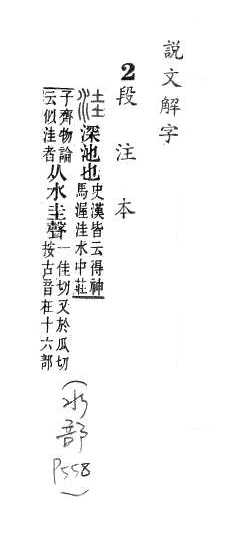 説文解字
2段注本
洼深池也史漢皆云得神
馬渥洼水中莊
子齊物論
云似洼者从水圭聲一佳切又於瓜切
按古音在十六部
(水部
P558)